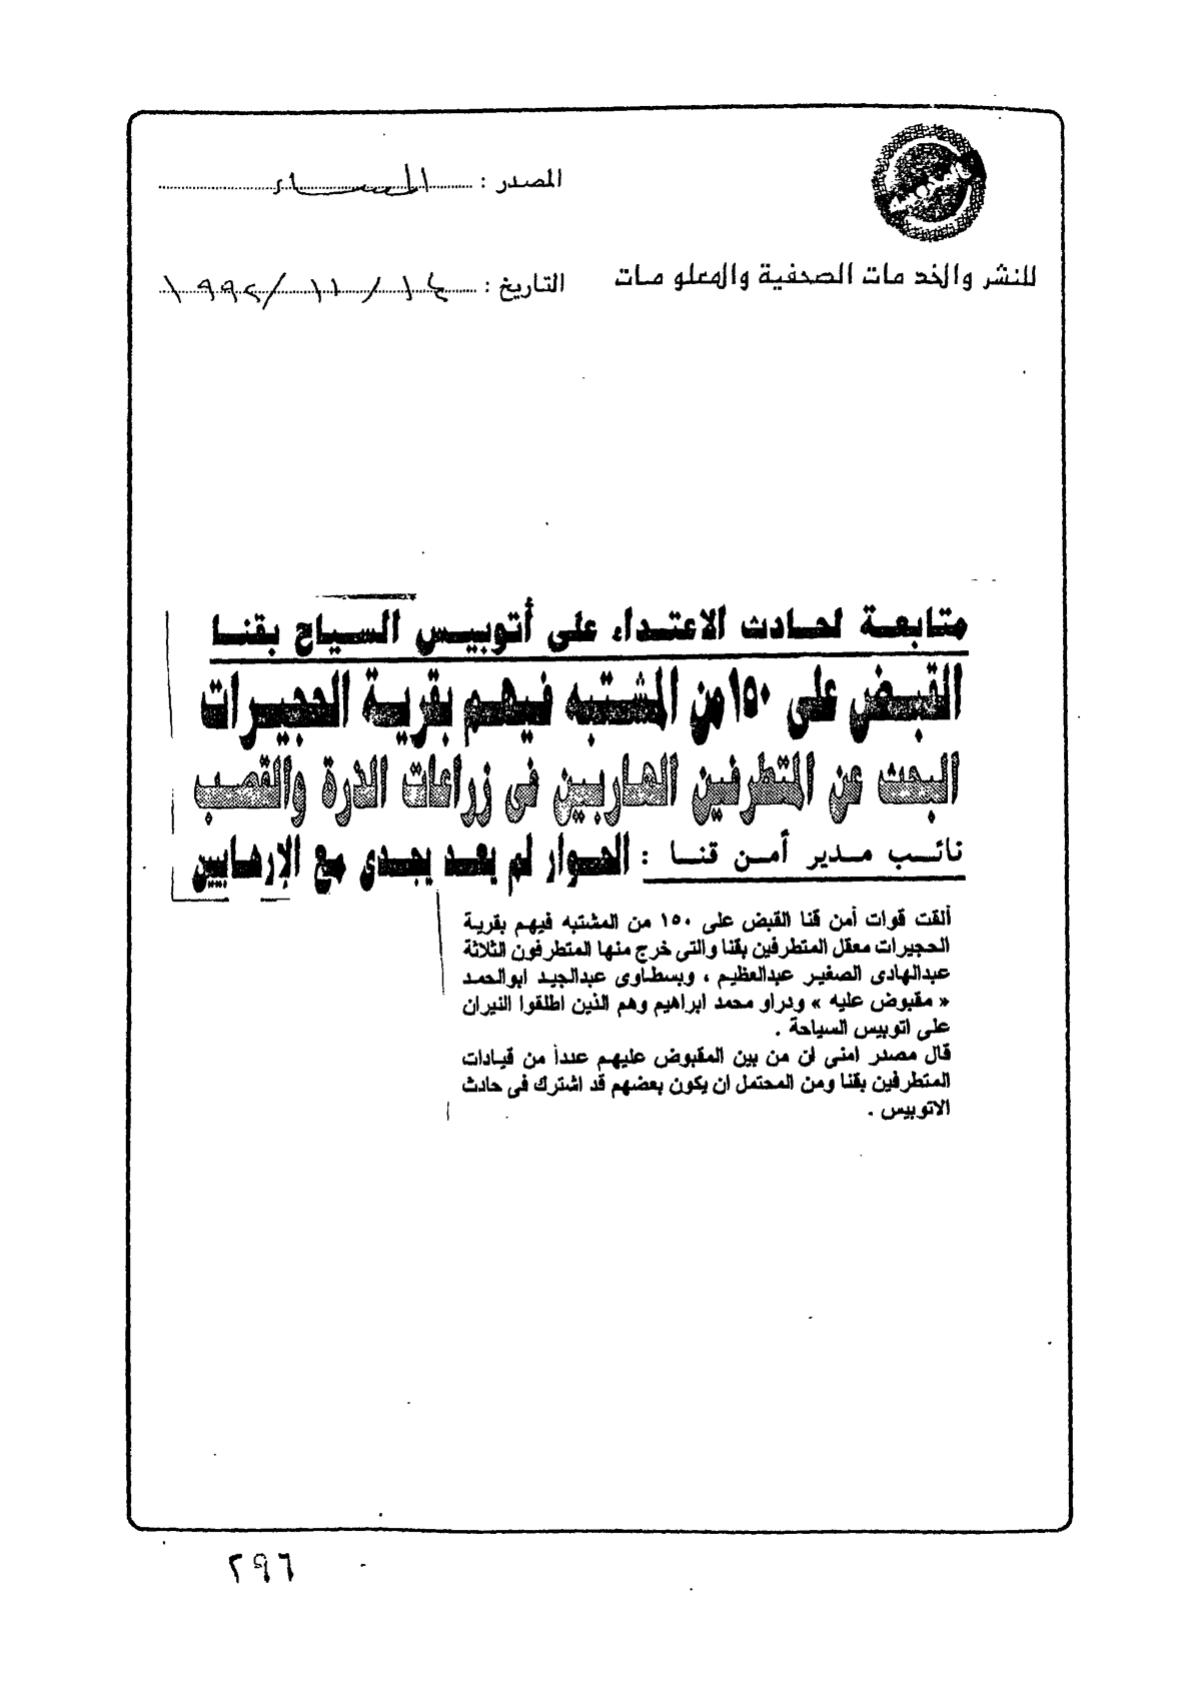 المصدر : المساء
للنشر والخدمات الصحفية والمعلومات
التاريخ : ١٤ / ١١ / ١٩٩٢
متابعة لحادث الاعتداء على أتوبيس السياح بقنا
القبض على ١٥٠ من المشتبه فيهم بقرية الحجيرات
البحث عن المتطرفين الهاربين فى زراعات الذرة والقصب
نائب مدير أمن قنا : الحوار لم يعد يجدى مع الإرهابيين
ألقت قوات أمن قنا القبض على ١٥٠ من المشتبه فيهم بقرية
الحجيرات معقل المتطرفين بقنا والتى خرج منها المتطرفون الثلاثة
عبدالهادى الصغير عبدالعظيم ، وبسطاوى عبدالجيد ابوالحمد
« مقبوض عليه » ودراو محمد ابراهيم وهم الذين اطلقوا النيران
على اتوبيس السياحة .
قال مصدر امنى ان من بين المقبوض عليهم عدداً من قيادات
المتطرفين بقنا ومن المحتمل ان يكون بعضهم قد اشترك فى حادث
الاتوبيس .
٢٩٦